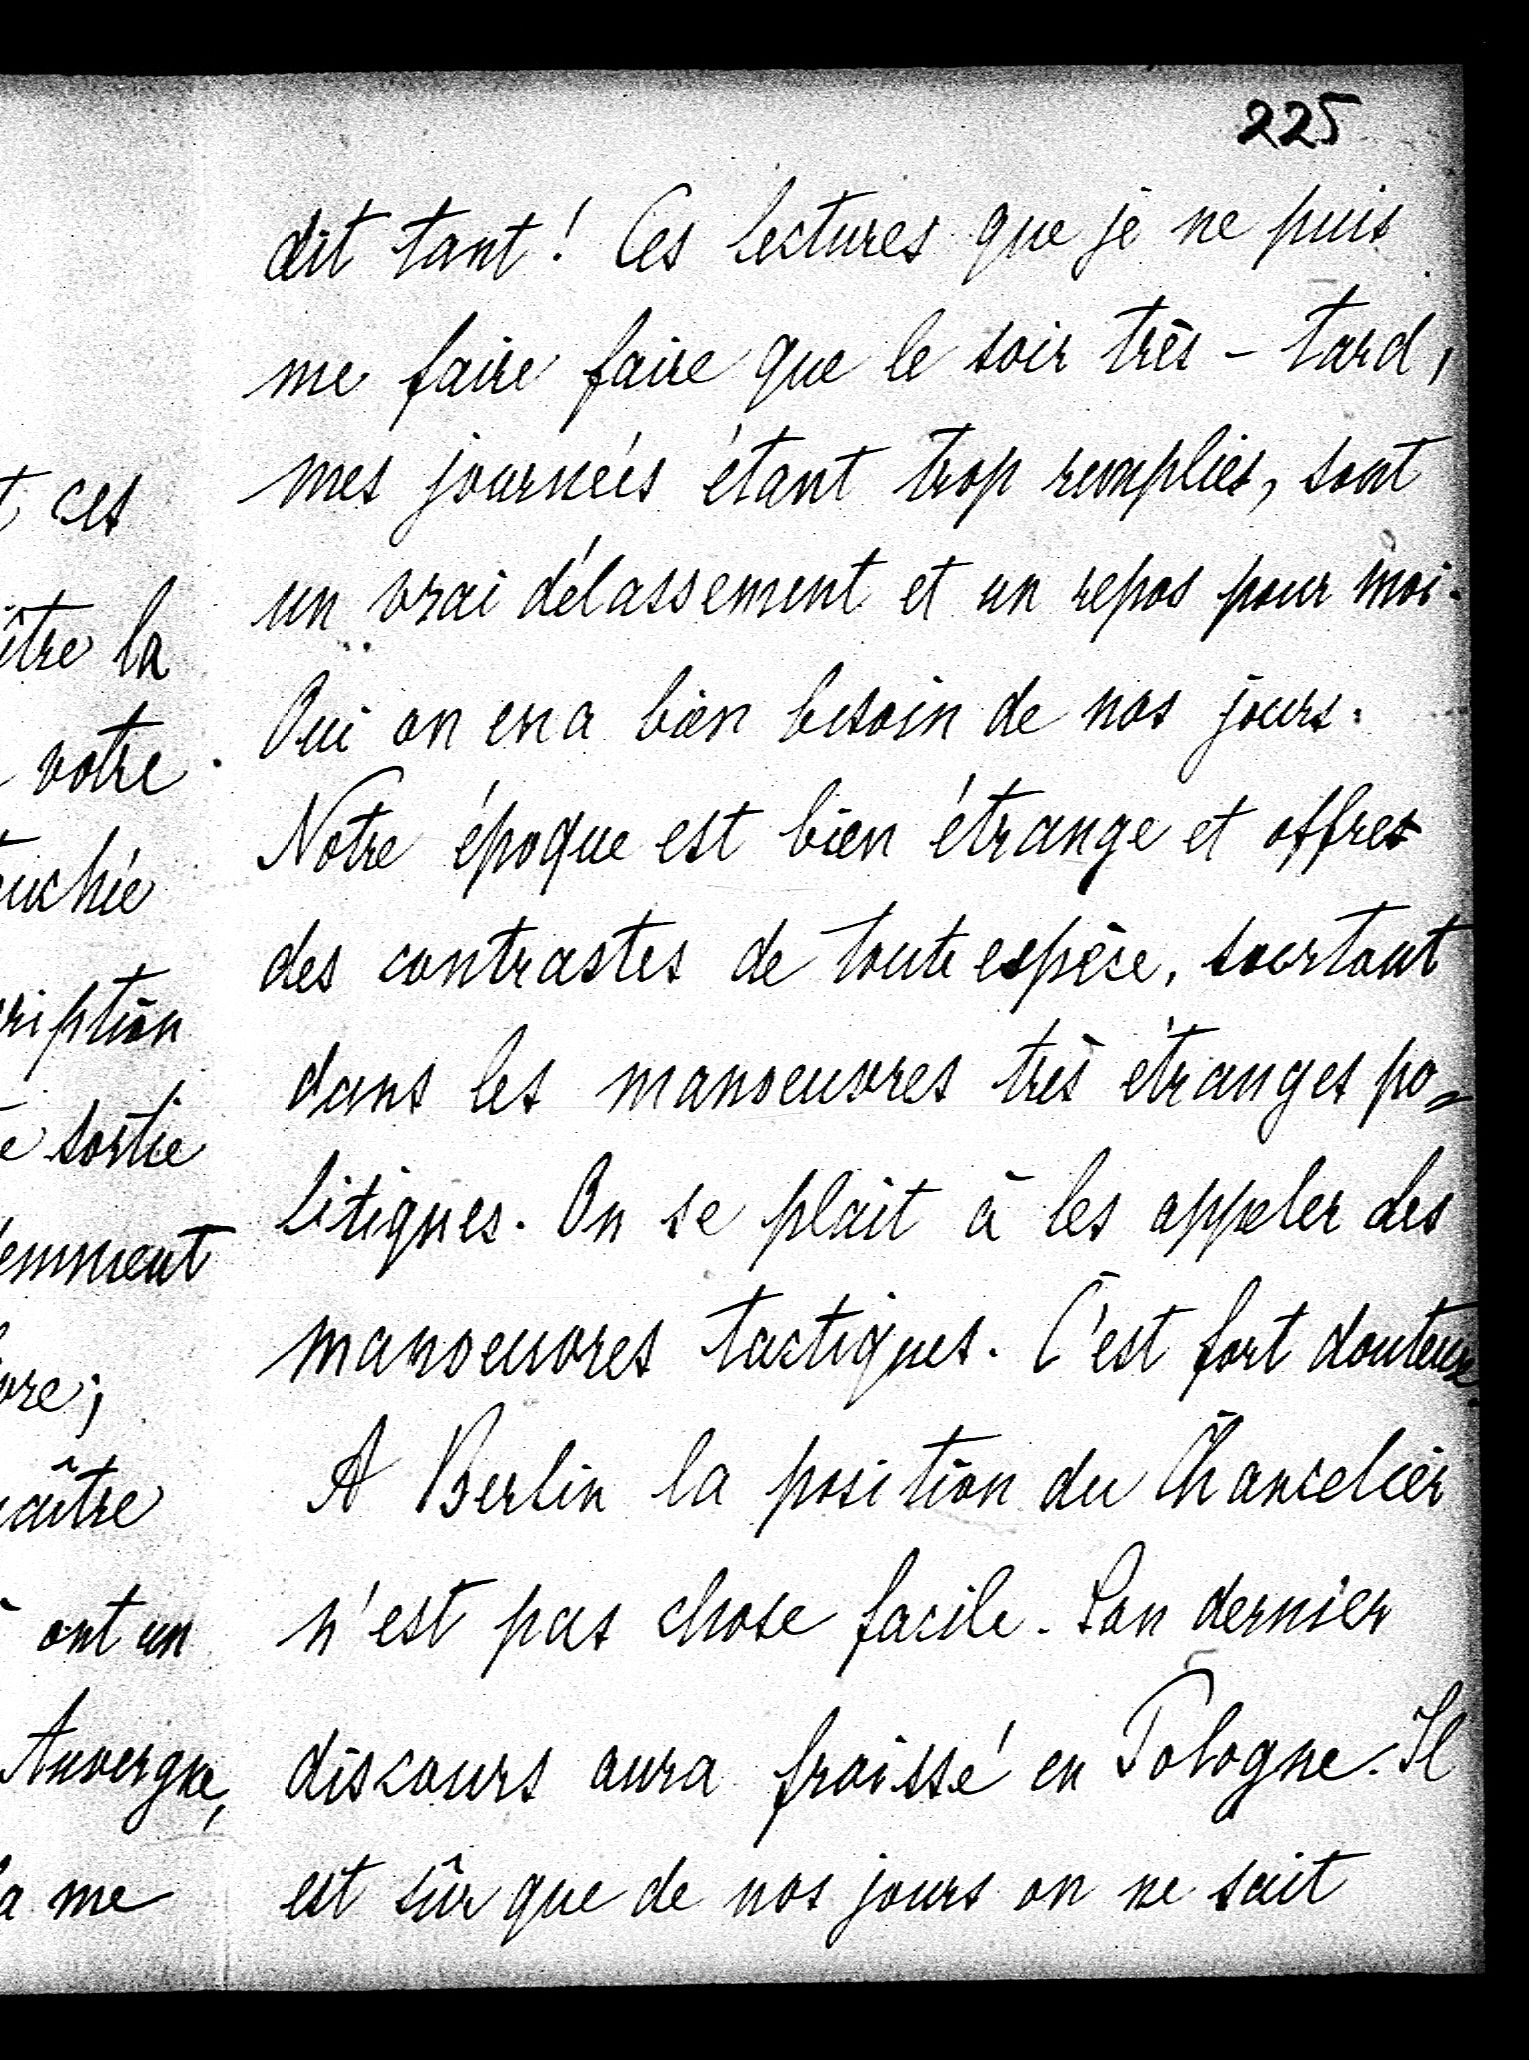 225
dit tant! Ces lectures que je ne puis
me faire faire que le soir très - tard,
mes journées étant trop remplies, sont
un vrai délassement et un repos pour moi.
Oui on en a bien besoin de nos jours.
Notre époque est bien étrange et offres
des contrastes de toute espèce, surtout
dans les manoeuvres très étranges po=
litiques. On se plait à les appeler des
manoeuvres tactiques. C'est fort douteux.
A Berlin la position du Chancelier
n'est pas chose facile. Son dernier
discours aura froissé en Pologne. Il
est sûr que de nos jours on ne sait
ces
la
votre
sortie
ont un
Auvergne,
me